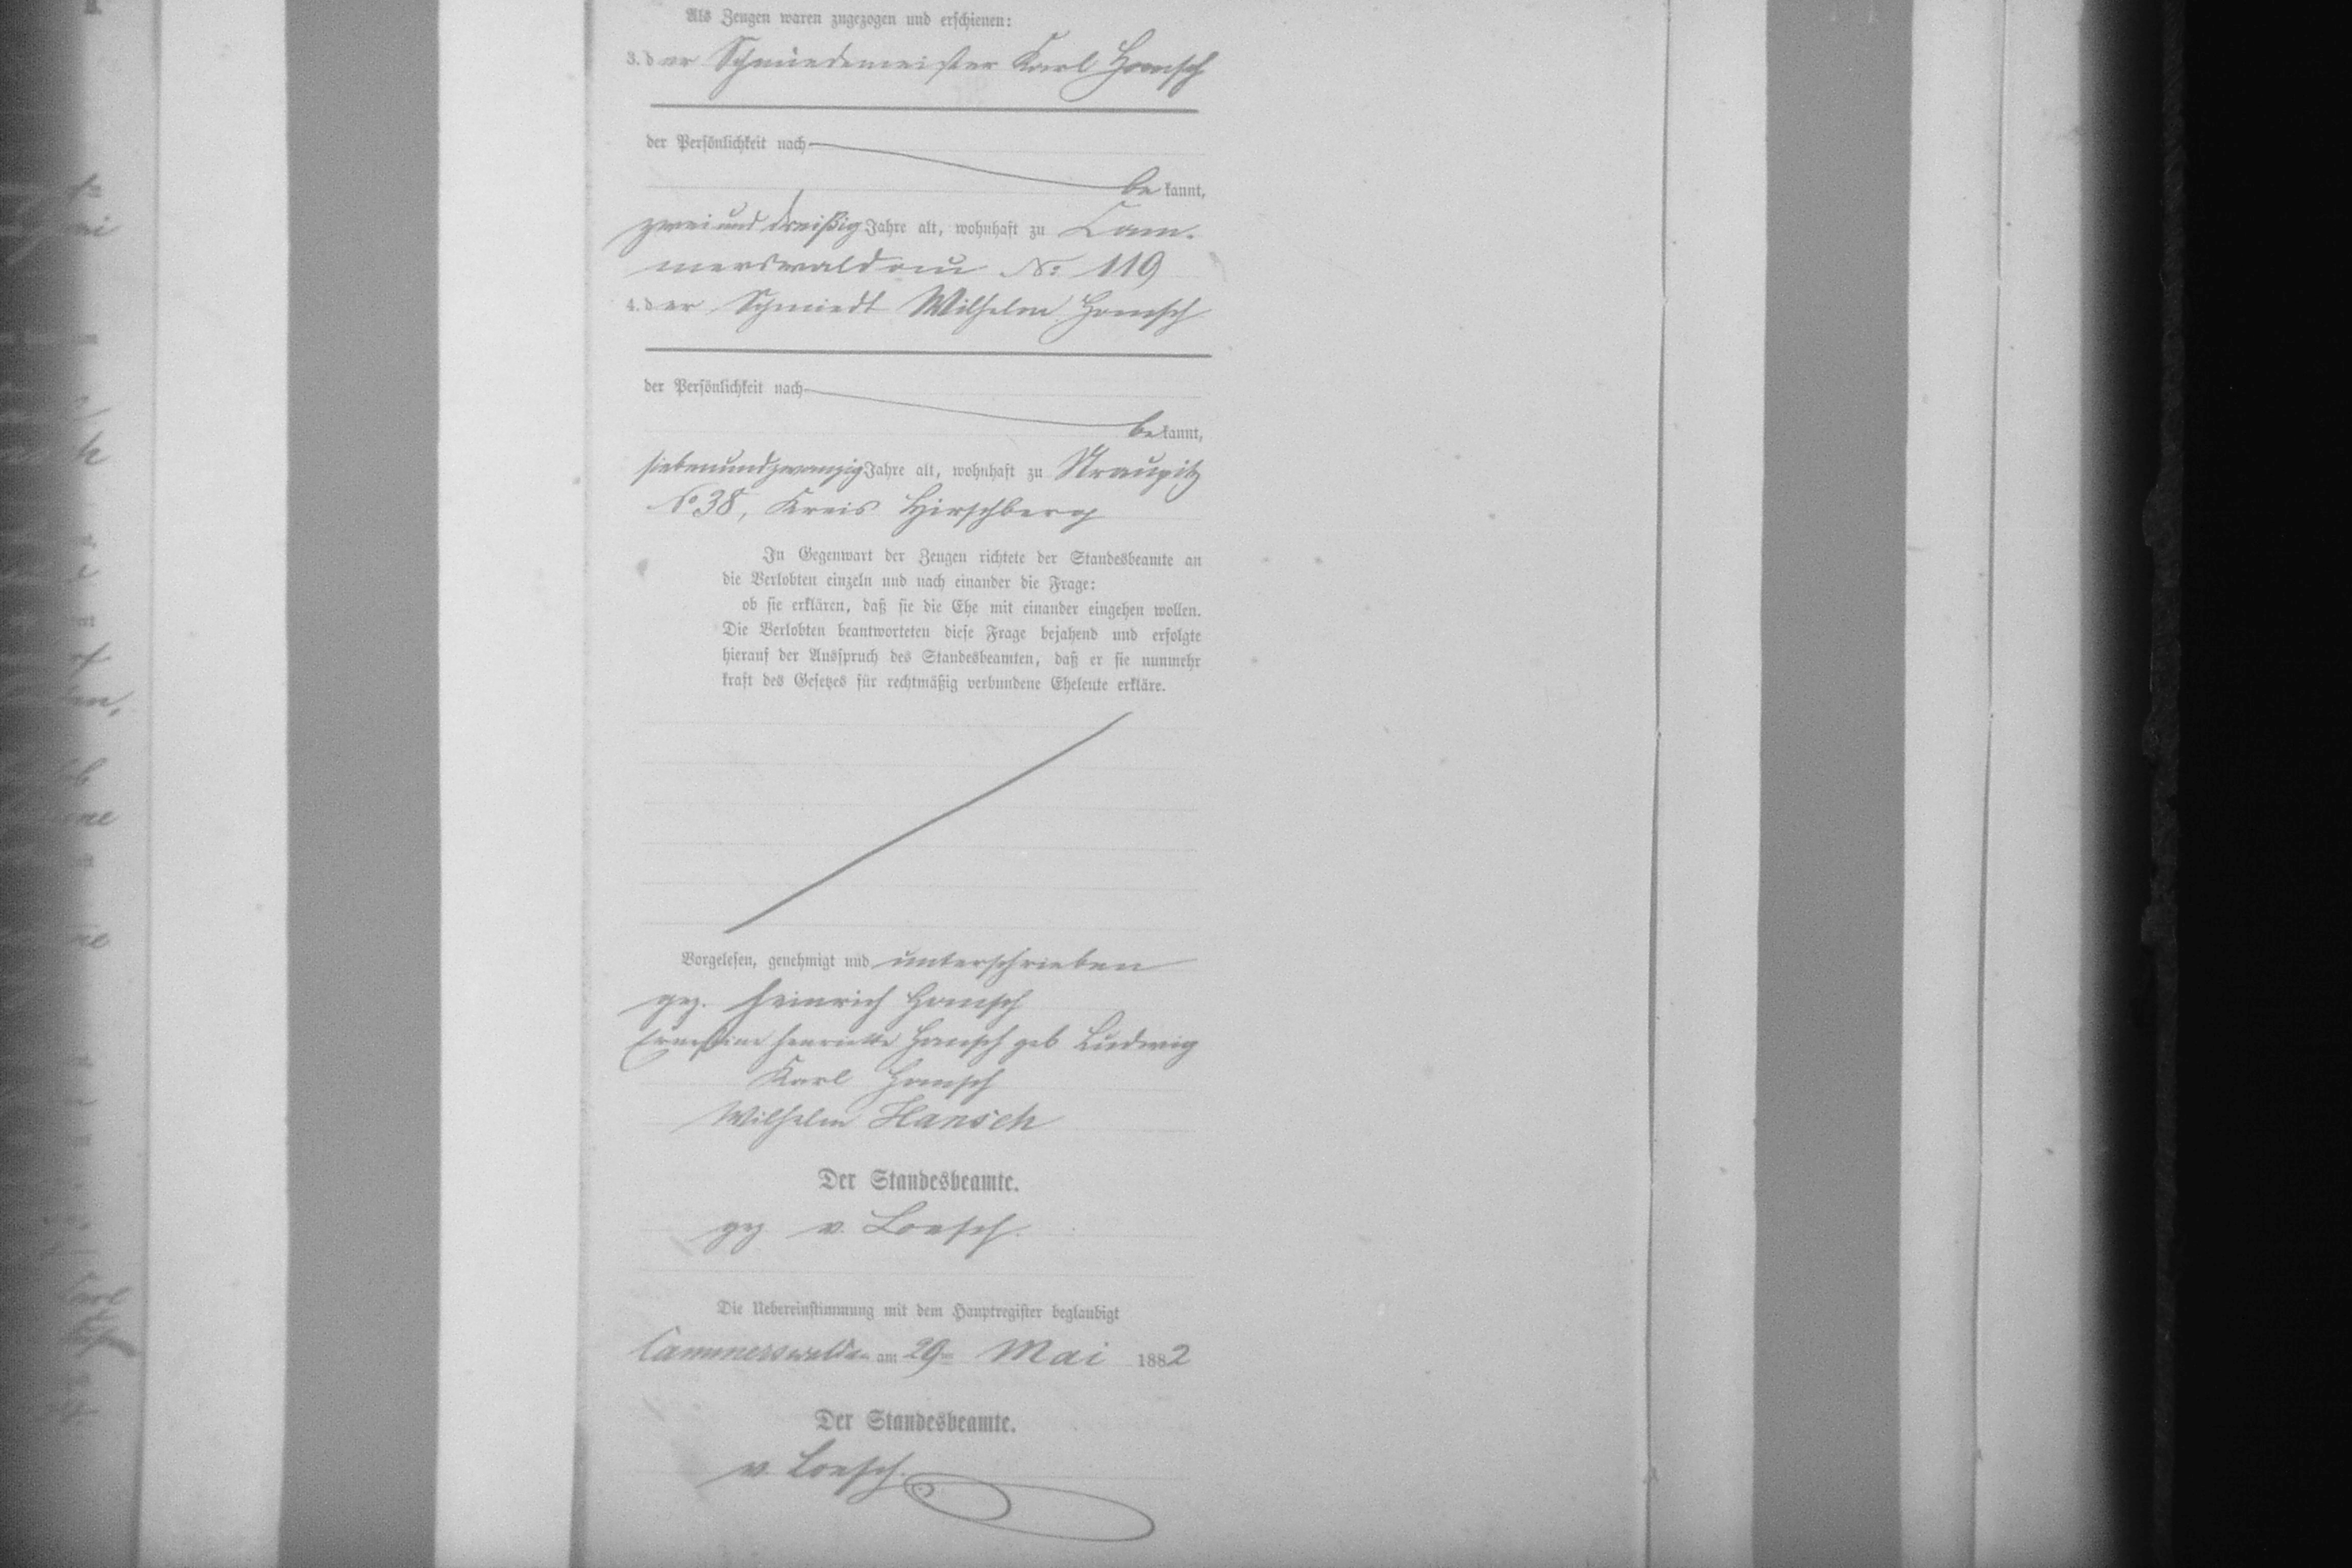 Als Zeugen waren zugezogen und erschienen:
3. der Schmiedemeister Karl Hansch
der Persönlichkeit nach
bekannt,
zweiund dreißig Jahre alt, wohnhaft zu Cam-
merswaldau No: 119
4. der Schmiedt Wilhelm Hansch
der Persönlichkeit nach
bekannt,
siebenundzwanzig Jahre alt, wohnhaft zu Straupitz
No 38, Kreis Hirschberg
In Gegenwart der Zeugen richtete der Standesbeamte an
die Verlobten einzeln und nach einander die Frage:
ob sie erklären, daß sie die Ehe mit einander eingehen wollen.
Die Verlobten beantworteten diese Frage bejahend und erfolgte
hierauf der Ausspruch des Standesbeamten, daß er sie nunmehr
kraft des Gesetzes für rechtmäßig verbundene Eheleute erkläre.
Vorgelesen, genehmigt und unterschrieben
gez. Heinrich Hansch
Ernestine Henriette Hansch geb Ludwig
Karl Hansch
Wilhelm Hansch
Der Standesbeamte.
gez v. Loesch.
Die Uebereinstimmung mit dem Hauptregister beglaubigt
Cammerswaldau am 29ten Mai 1882
Der Standesbeamte.
v. Loesch.